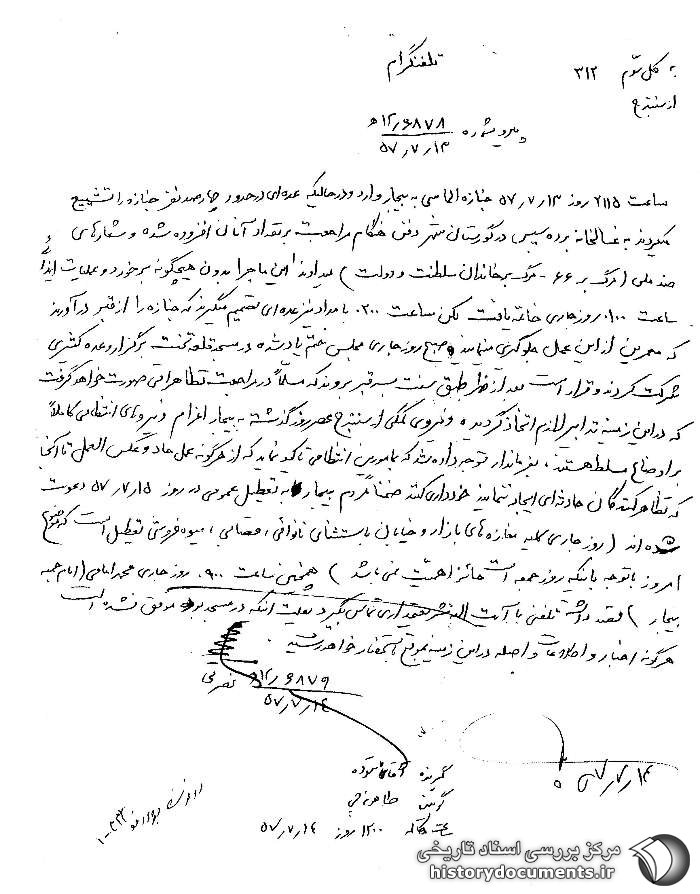 تلفنگرام
به کل سوم ۳۱۲
از سنندج
پیرو شماره ۱۲/۶۸۷۸ ه
۵۷/۷/۱۳
ساعت ۲۱۱۵ روز ۵۷/۷/۱۳ جنازه الماسی به بیجار وارد و در حالیکه عده‌ای در حدود چهارصد نفر جنازه را تشییع
میکردند به غسالخانه برده سپس در گورستان شهر دفن هنگام مراجعت بر تعداد آنان افزوده شده و شعارهای
ضد ملی (مرگ بر ۶۶ - مرگ بر خاندان سلطنت و دولت) میدادند این ماجرا بدون هیچگونه برخورد و عملیات
ساعت ۰۱۰۰ روز جاری خاتمه یافت لکن ساعت ۰۲۰۰ بامداد نیز عده‌ای تصمیم میگیرند که جنازه را از قبر در آورند
که معمرین از این عمل جلوگیری مینمایند و صبح روز جاری مجلس ختم یاد شده در مسجد قلعه تخت برگزار و عده کثیری
شرکت کردند و قرار است بعد از ظهر طبق سنت بسر قبر بروند که مسلماً در مراجعت تظاهراتی صورت خواهد گرفت
که در این زمینه تدابیر لازم اتخاذ گردیده و نیروی کمکی از سنندج عصر روز گذشته به بیجار اعزام و نیروهای انتظامی کاملاً
بر اوضاع مسلط هستند، بفرماندار توجه داده شد که بمامورین انتظامی تاکید نماید که از هرگونه عمل حاد و عکس العمل تا آنجا
که تظاهر کنندگان حادثه‌ای ایجاد ننمایند خودداری کنند ضمناً مردم بیجار به تعطیل عمومی در روز ۵۷/۷/۱۵ دعوت
شده‌اند (روز جاری کلیه مغازه‌های بازار و خیابان باستثنای نانوائی، قصابی، میوه فروشی تعطیل است که وضع
امروز با توجه باینکه روز جمعه است حائز اهمیت نمی باشد) همچنین ساعت ۰۹۰۰ روز جاری محمد امامی (امام جمعه
بیجار) قصد داشته تلفنی با آیت الله شریعتمداری تماس بگیرد بعلت اینکه در مسجد بوده موفق نشده است
هرگونه اخبار و اطلاعات واصله در این زمینه بموقع باستحضار خواهد رسید.
۱۲/۶۸۷۹ ه
۵۷/۷/۱۴
۵۷/۷/۱۴
گیرنده
گوینده
ساعت مخابره ۱۳۰۰ روز ۵۷/۷/۱۴
مرکز بررسی اسناد تاریخی
historydocuments.ir